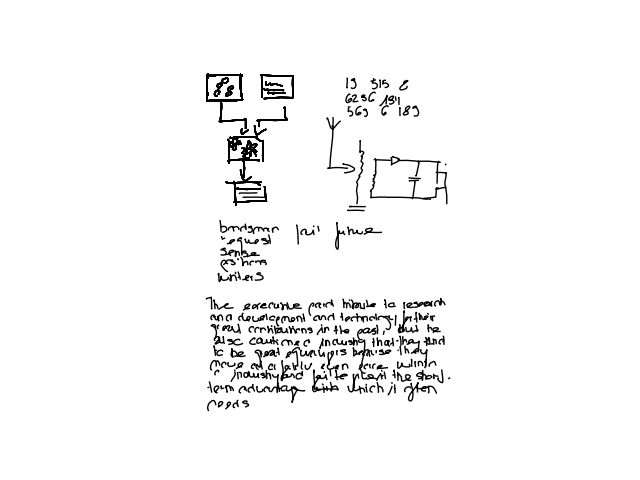 19 315 2
6236 134
569 6 189
bondsman
request
sense
writers
The executive paid tribute to research
and development and technology for their
great contributions in the past, but he
also cautioned industry that they tend
to be great equalizers because they
move at a fairly even pace within
industry and fail to present the short-
term advantage which it often
needs